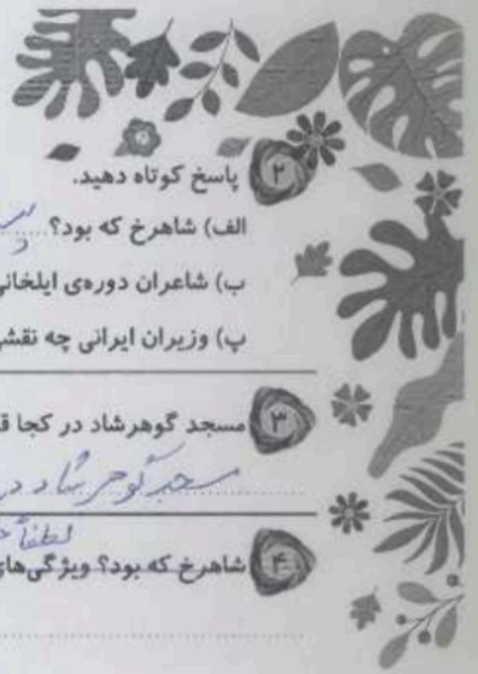 ۲ پاسخ کوتاه دهید.
الف) شاهرخ که بود؟
ب) شاعران دوره‌ی ایلخانی
پ) وزیران ایرانی چه نقشی
۳ مسجد گوهرشاد در کجا
مسجد گوهر شاد در
لطفاً
۴ شاهرخ که بود؟ ویژگی‌های